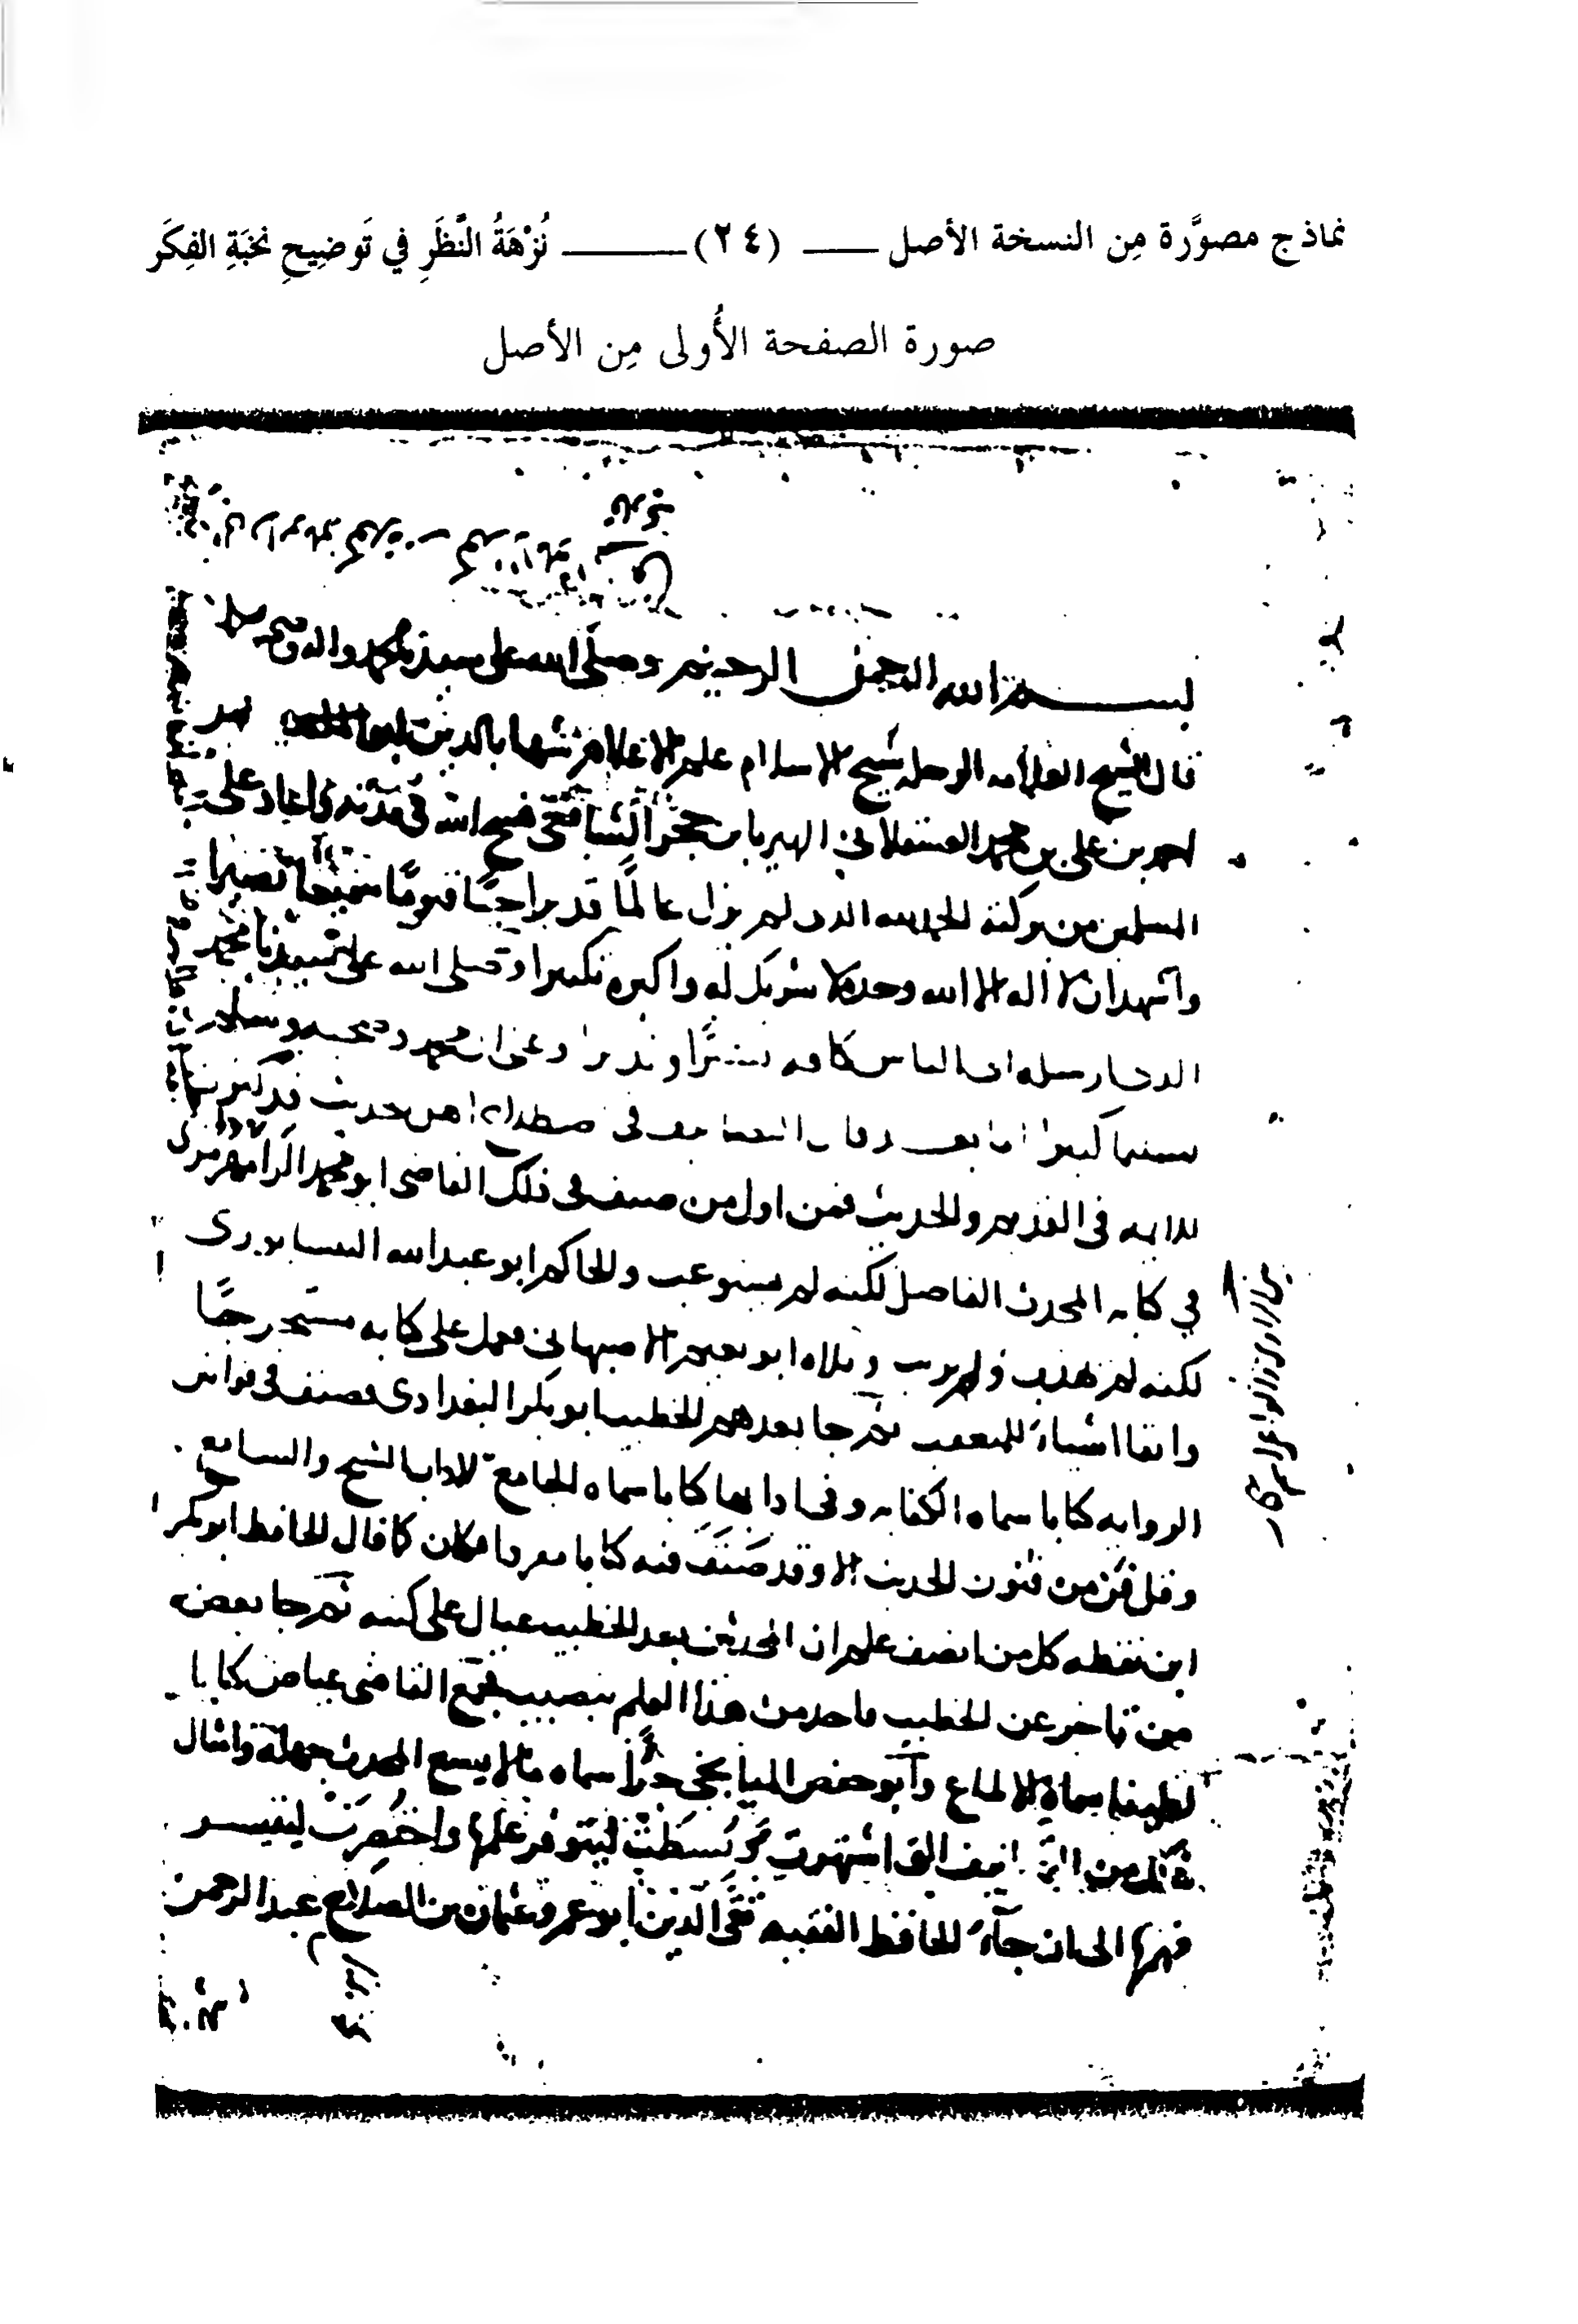 نماذج مصوَّرة مِن النسخة الأصل ـــــ (٢٤) ـــــ نُزْهَةُ النَّظَرِ في تَوضِيحِ نُخْبَةِ الفِكَر
صورة الصفحة الأُولى مِن الأصل
بسم الله الرحمن الرحيم وصلى الله على سيدنا محمد واله وصحبه وسلم
قال الشيخ العلامه الرحله شيخ الاسلام علم الاعلام شهاب الدين
احمد بن على بن محمد العسقلاني الشهير بابن حجر الشافعى فسح الله فى مدته واعاد على
المسلمين من بركته الحمد لله الذى لم يزل عالمًا قديرا حيًا قيومًا سميعًا بصيرا
واشهد ان لا اله الا الله وحده لا شريك له واكبره تكبيرا وصلى الله على سيدنا محمد
الذى ارسله الى الناس كافه بشيرًا ونذيرا وعلى ال محمد وصحبه وسلم
تسليما كثيرا اما بعد فان التصانيف فى اصطلاح اهل حديث قد كثرت
للايمه فى القديم والحديث فمن اول من صنف فى ذلك القاضى ابو محمد الرامهرمزى
في كتابه المحدث الفاصل لكنه لم يستوعب والحاكم ابو عبد الله النيسابورى
لكنه لم يهذب ولم يرتب وتلاه ابو نعيم الاصبهاني فعمل على كتابه مستخرجًا
وابقا اشياء للمتعقب ثم جا بعدهم الخطيب ابو بكر البغدادى فصنف فى قوانين
الروايه كتابا سماه الكفايه وفى ادابها كتابا سماه الجامع لاداب الشيخ والسامع
وقل فن من فنون الحديث الا وقد صنف فيه كتابا مفردا فكان كما قال الحافظ ابو بكر
ابن نقطه كل من انصف علم ان المحدثين بعد الخطيب عيال على كتبه ثم جا بعض
من تاخر عن الخطيب فاخذ من هذا العلم بنصيب فجمع القاضى عياض كتابا
لطيفا سماه الالماع وابو حفص الميانجى جزءًا سماه ما لا يسع المحدث جهله وامثال
ذلك من التصانيف التى اشتهرت وبسطت ليتوفر علمها واختصرت ليتيسر
فهمها الى ان جاء الحافظ الفقيه تقى الدين ابو عمرو عثمان بن الصلاح عبد الرحمن